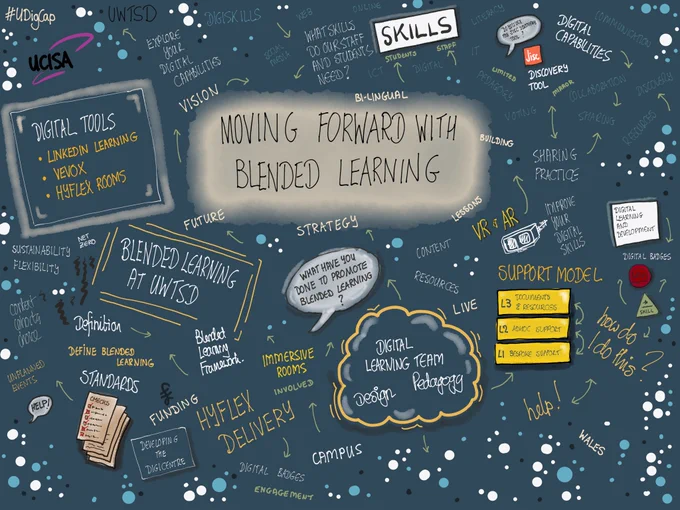 #UDigCap
UWTSD
UCISA
EXPLORE
YOUR
DIGITAL
CAPABILITIES
DIGISKILLS
WEB
WHAT SKILLS
DO OUR STAFF
AND STUDENTS
NEED?
SKILLS
STUDENTS
STAFF
ICT
DIGITAL
DIGITAL
CAPABILITIES
Jisc
DISCOVERY
TOOL
LIMITED
MIRROR
COLLABORATION
VOTING
SHARING
RESOURCES
VISION
BI-LINGUAL
DIGITAL TOOLS
• LINKEDIN LEARNING
• VEVOX
• HYFLEX ROOMS
MOVING FORWARD WITH
BLENDED LEARNING
BUILDING
SHARING
PRACTICE
LESSONS
FUTURE
STRATEGY
VR & AR
IMPROVE
YOUR
DIGITAL
SKILLS
DIGITAL
LEARNING
AND
DEVELOPMENT
DIGITAL BADGES
+
SKILL
NET
ZERO
SUSTAINABILITY
FLEXIBILITY
BLENDED LEARNING
AT UWTSD
WHAT HAVE YOU
DONE TO PROMOTE
BLENDED LEARNING
?
CONTENT
RESOURCES
LIVE
SUPPORT MODEL
L3 DOCUMENTS
& RESOURCES
L2 ADHOC SUPPORT
L1 BESPOKE SUPPORT
how do
I do this?
help!
WALES
Definition
DEFINE BLENDED
LEARNING
Blended
Learning
Framework.
IMMERSIVE
ROOMS
INVOLVED
DIGITAL
LEARNING TEAM
Design
Pedagogy
UNPLANNED
EVENTS
HELP!
STANDARDS
CHECKS
£
FUNDING
DEVELOPING
THE
DIGICENTRE
HYFLEX
DELIVERY
CAMPUS
DIGITAL BADGES
ENGAGEMENT